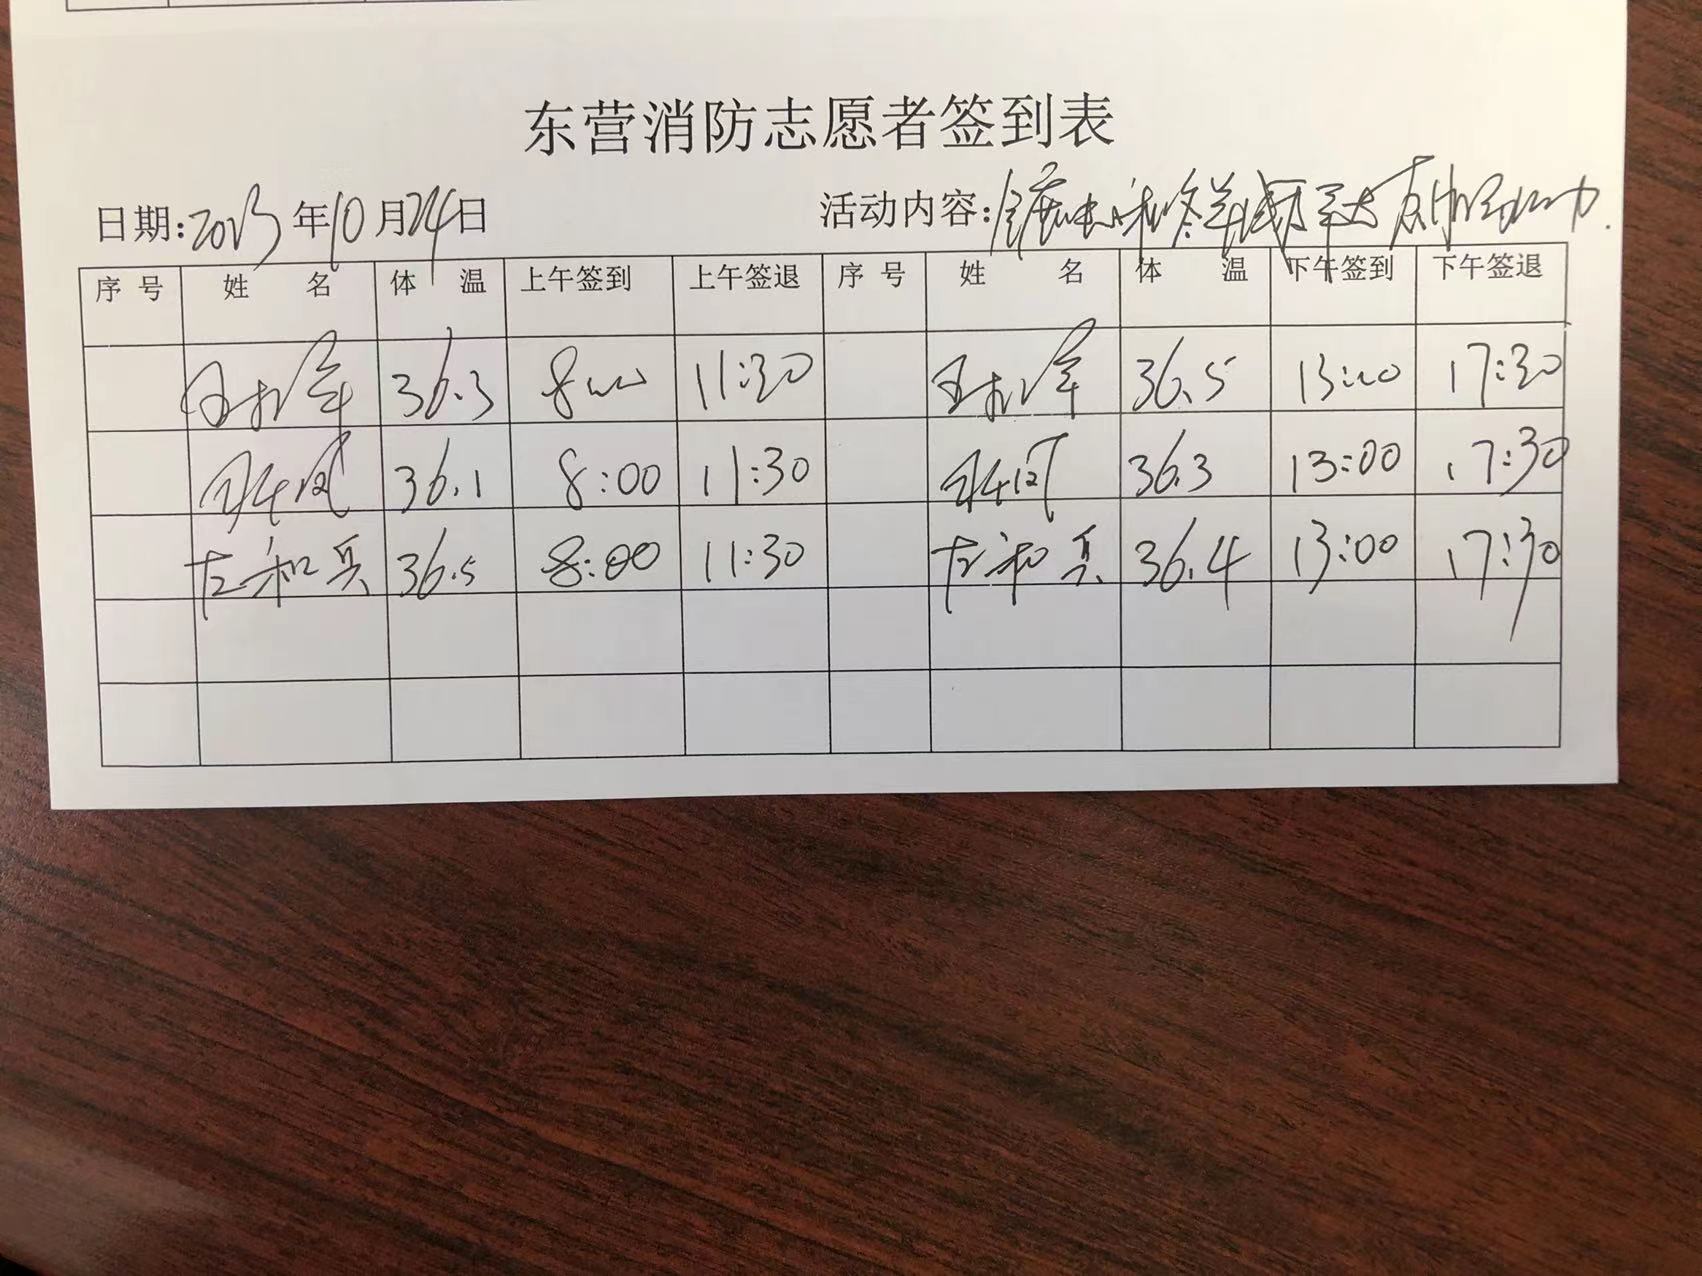 东营消防志愿者签到表
日期:2023年10月24日 活动内容:
序号 姓名 体温 上午签到 上午签退 序号 姓名 体温 下午签到 下午签退
36.3 8:00 11:30 36.5 13:00 17:30
36.1 8:00 11:30 36.3 13:00 17:30
左和兵 36.5 8:00 11:30 左和兵 36.4 13:00 17:30